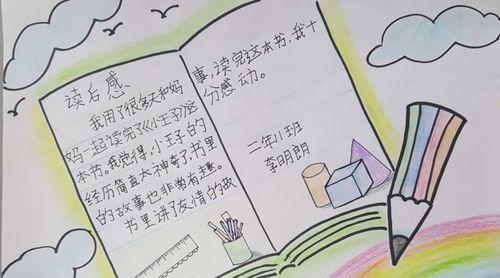 读后感、
我用了很多天和妈
妈一起读完了《小王子》这
本书。我觉得,小王子的
经历简直太神奇了,书里
的故事也非常有趣。
书里讲了友情的故
事,读完这本书,我十
分感动。
二年11班
李明朗